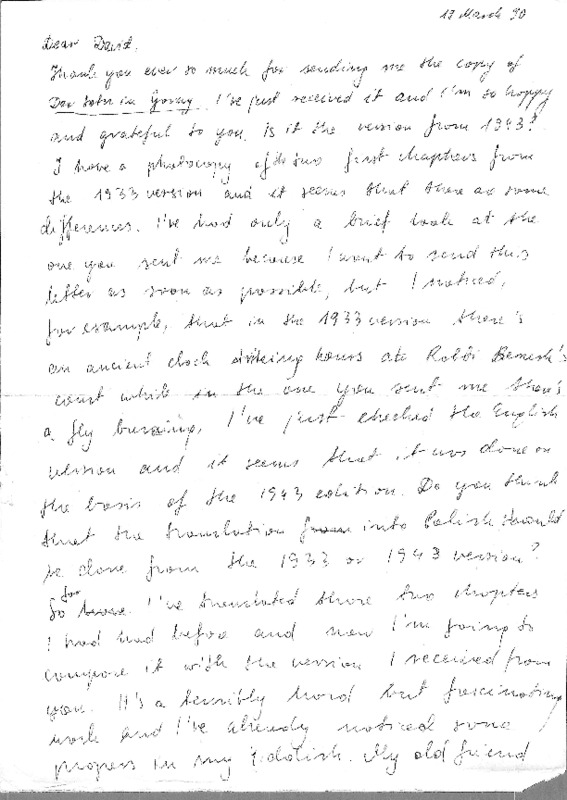 17 March 90
Dear David.
Thank you ever so much for sending me the copy of
Der Sotn in Goray. I've just received it and I'm so happy
and grateful to you. Is it the version from 1943?
I have a photocopy of the two first chapters from
the 1933 version and it seems that there are some
differences. I've had only a brief look at the
one you sent me because I want to send this
letter as soon as possible, but I noticed,
for example, that in the 1933 version there's
an ancient clock striking hours at Rabbi Benish's
court while in the one you sent me there's
a fly buzzing. I've just checked the English
version and it seems that it was done on
the basis of the 1943 edition. Do you think
that the translation from into Polish should
be done from the 1933 or 1943 version?
So far I've translated those two chapters
I had had before and now I'm going to
compare it with the version I received from
you. It's a terribly hard but fascinating
work and I've already noticed some
progress in my Yiddish. My old friend